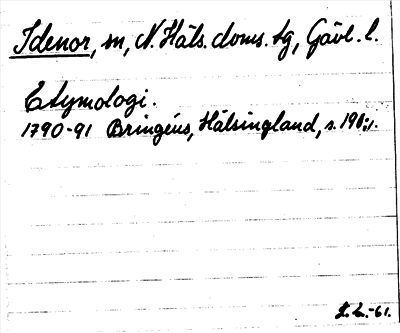 Idenor, sn, N. Häls. doms. tg, Gävl. l.
Etymologi.
1790-91 Bringéus, Hälsingland, s. 196:1.
L.L.-61.